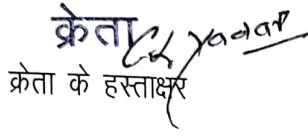 क्रेता Yadav
क्रेता के हस्ताक्षर